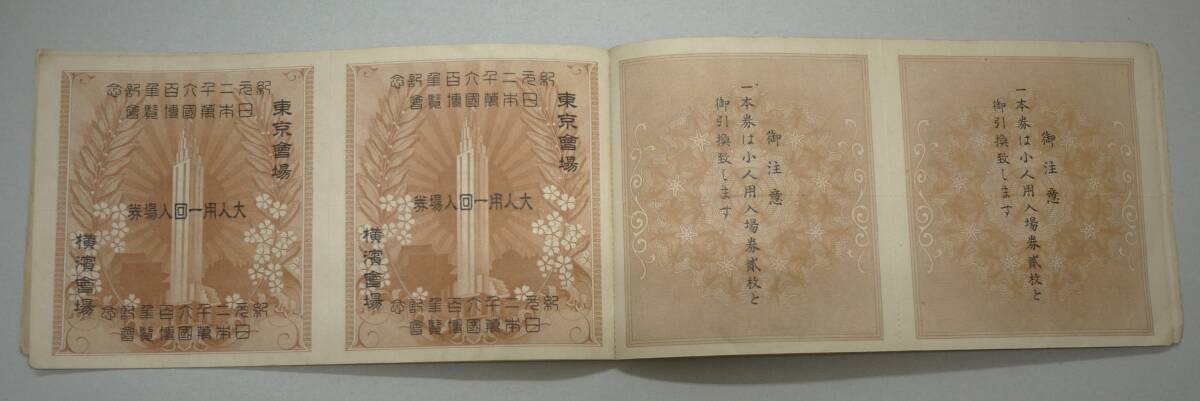 紀元二千六百年記念
日本萬國博覽會
東京會場
大人用一回入場券
橫濱會場
紀元二千六百年記念
日本萬國博覽會
紀元二千六百年記念
日本萬國博覽會
東京會場
大人用一回入場券
橫濱會場
紀元二千六百年記念
日本萬國博覽會
御注意
一本券は小人用入場券貳枚と
御引換致します
御注意
一本券は小人用入場券貳枚と
御引換致します